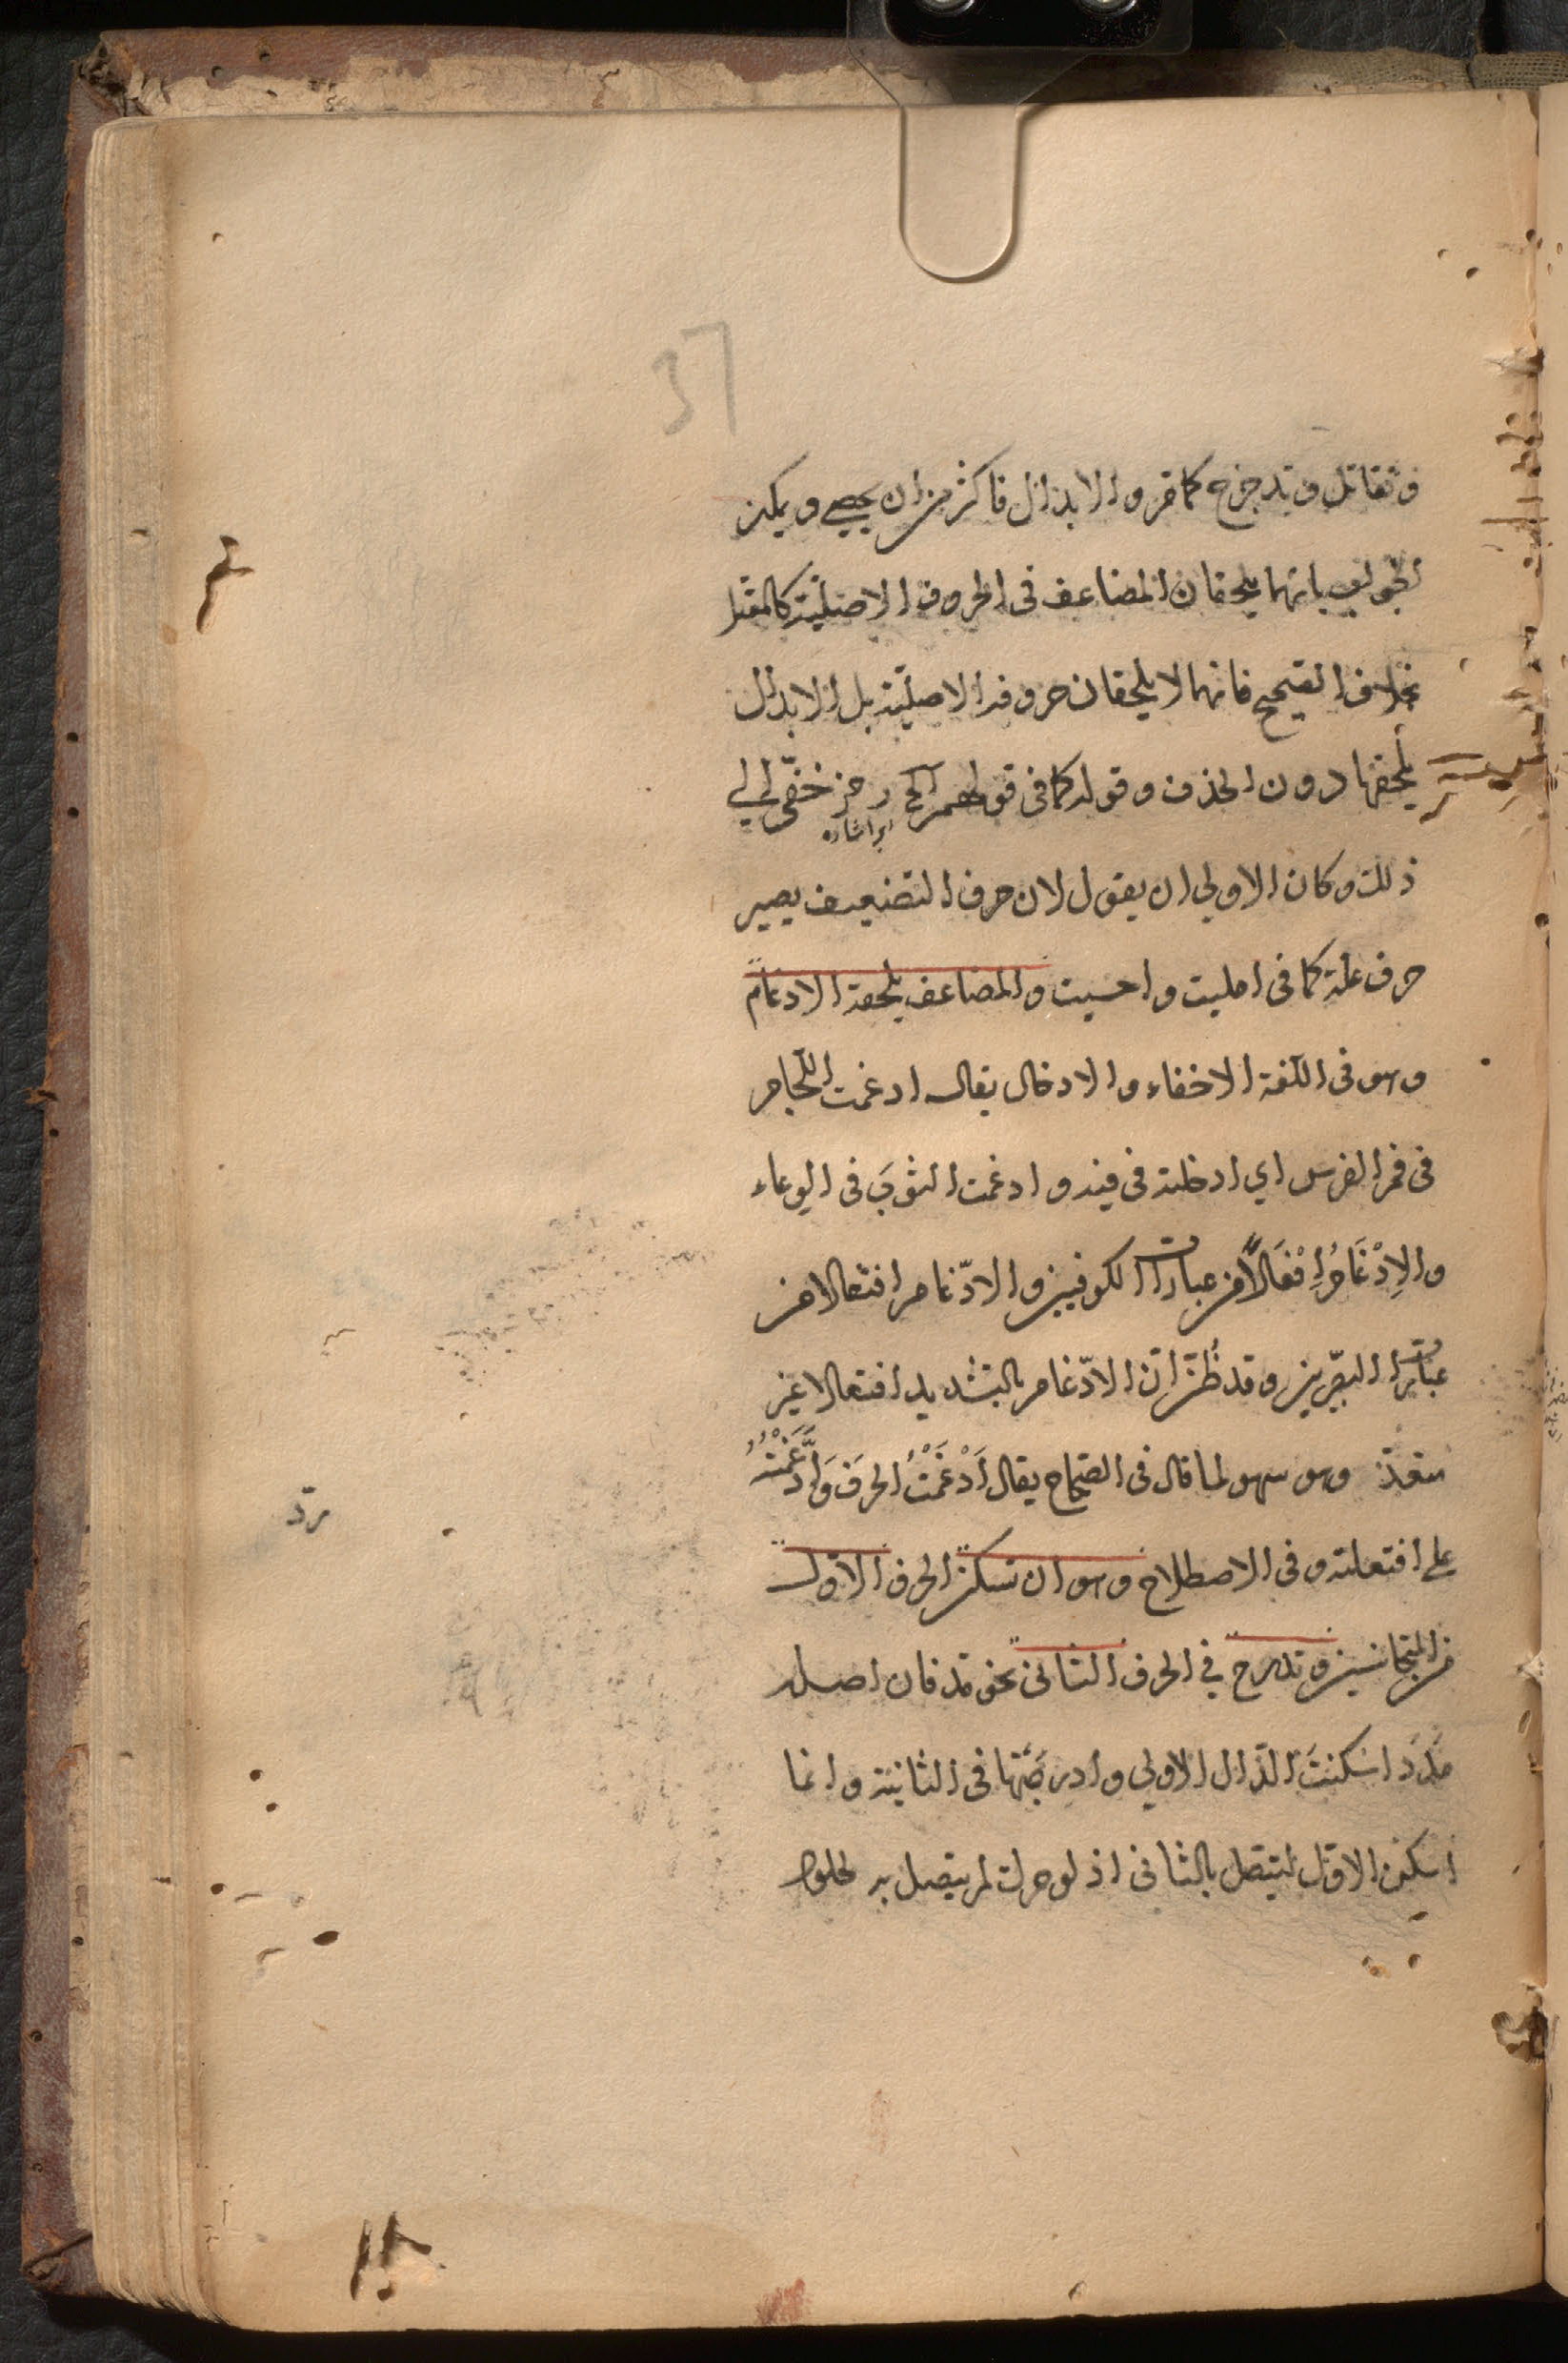 37
وتقاتل وتدحرج كما مر والابدال فاكثر من ان يحصى ويمكن
الجواب بانهما يلحقان المضاعف فى الحروف الاصلية كالمعتل
بخلاف الصحيح فانهما لا يلحقان حروفه الاصلية بل الابدال
يلحقها دون الحذف وقوله كما فى قولهم الخ رمز خفى الى
اى اشارة
ذلك وكان الاولى ان يقول لان حرف التضعيف يصير
حرف علة كما فى امليت واحسيت والمضاعف يلحقه الادغام
وهو فى اللغة الاخفاء والادخال يقال ادغمت اللجام
فى فم الفرس اي ادخلته فى فيه وادغمت الثوبَ فى الوعاء
والاِدْغَامُ اِفْعَالًا من عبارات الكوفيين والادّغام افتعالا من
عبارات البصريين وقد ظُنَّ انّ الادّغام بالتشديد افتعالا غير
متعدّ وهو سهو لما قال فى الصحاح يقال اَدْغَمْتُ الحرفَ وَادَّغَمْتُهُ
على افتعلته وفى الاصطلاح وهو ان تسكن الحرف الاول
من المتجانسين وتدرج في الحرف الثانى نحو مدّ فان اصله
مَدَدَ اسكنتَ الدال الاولى وادرجتَها فى الثانية وانما
اسكن الاول ليتصل بالثانى اذ لو حرك لم يتصل به لحلول